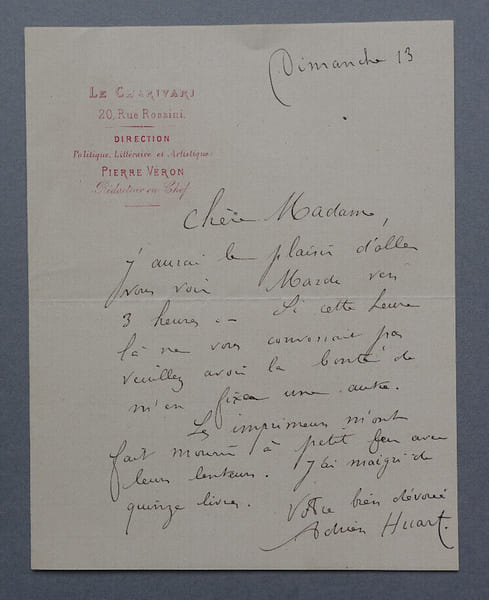 Dimanche 13
LE CHARIVARI
20, Rue Rossini.
DIRECTION
Politique, Littéraire et Artistique
PIERRE VÉRON
Rédacteur en Chef
Chère Madame,
J'aurai le plaisir d'aller
vous voir Mardi vers
3 heures. — Si cette heure
là ne vous convenait pas
veuillez avoir la bonté de
m'en fixer une autre.
Les imprimeurs m'ont
fait mourir à petit feu avec
leurs lenteurs. J'ai maigri de
quinze livres.
Votre bien dévoué
Adrien Huart.